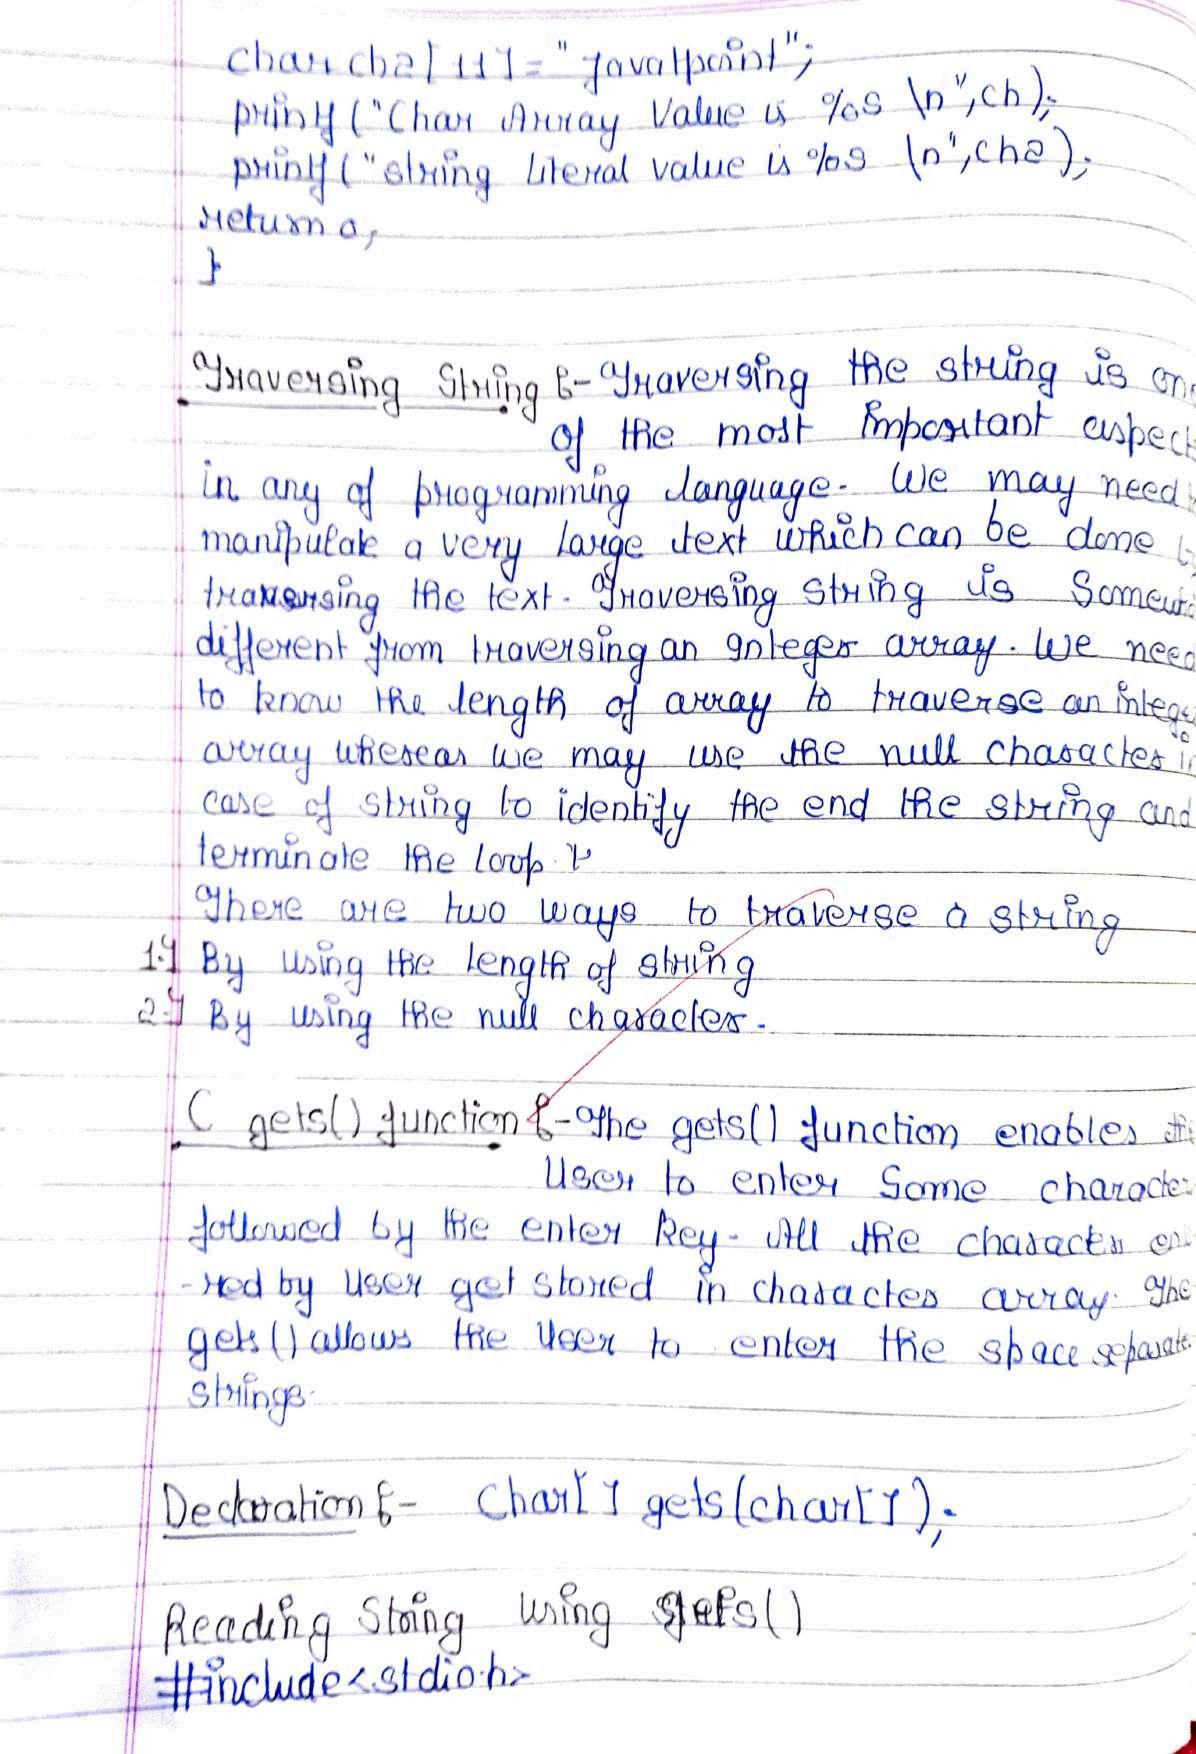 char ch2[11]="javatpoint";
printf("Char Array Value is %s \n",ch);
printf("string Literal value is %s \n",ch2);
return 0;
}
Traversing String :- Traversing the string is one
of the most important aspect
in any of programming language. We may need
manipulate a very large text which can be done
traversing the text. Traversing string is Somewh
different from traversing an integer array. We need
to know the length of array to traverse an intege
array whereas we may use the null character in
case of string to identify the end the string and
terminate the loop.
There are two ways to traverse a string
1. By using the length of string
2. By using the null character.
C gets() function :- The gets() function enables the
User to enter Some character
followed by the enter key. All the character ent
-red by user get stored in character array. The
gets() allows the User to enter the space separate
strings.
Declaration :- Char[] gets(char[]);
Reading String using gets()
#include<stdio.h>